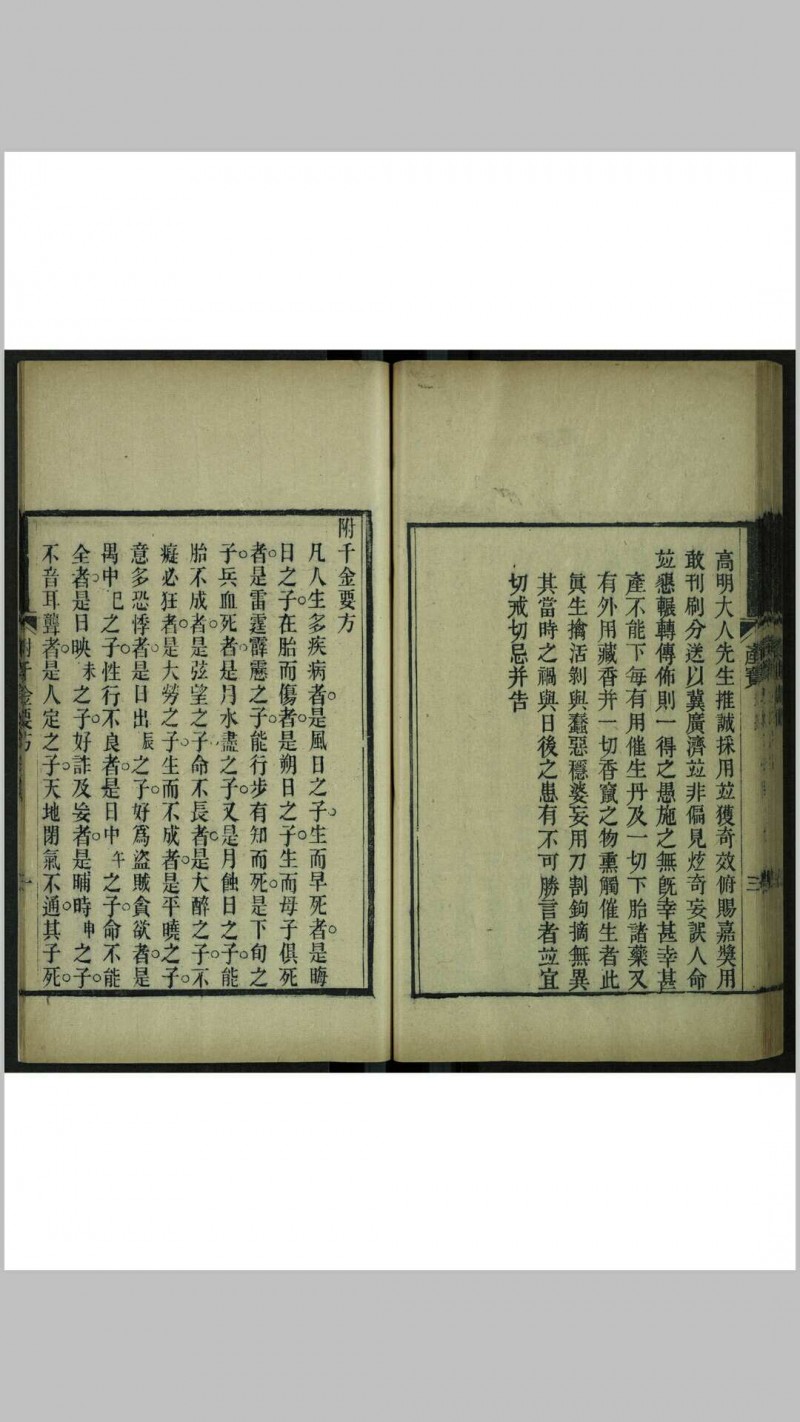 高明大人先生推誠採用竝獲奇效俯賜嘉獎用
敢刊刷分送以冀廣濟竝非偏見炫奇妄誤人命
竝懇輾轉傳佈則一得之愚施之無旣幸甚幸甚
產不能下每有用催生丹及一切下胎諸藥又
有外用藏香并一切香竄之物熏觸催生者此
眞生擒活剝與蠢惡穩婆妄用刀割鉤摘無異
其當時之禍與日後之患有不可勝言者竝宜
切戒切忌并吿
產寶
三
附千金要方
凡人生多疾病者是風日之子生而早死者是晦
日之子在胎而傷者是朔日之子生而母子俱死
者是雷霆霹靂之子能行步有知而死是下旬之
子兵血死者是月水盡之子又是月蝕日之子能
胎不成者是弦望之子命不長者是大醉之子不
癡必狂者是大勞之子生而不成者是平曉之子
意多恐悸者是日出辰之子好爲盜賊貪欲者是
禺中巳之子性行不良者是日中午之子命不能
全者是日昳未之子好詐及妄者是晡時申之子
不音耳聾者是人定之子天地閉氣不通其子死
附千金要方
一